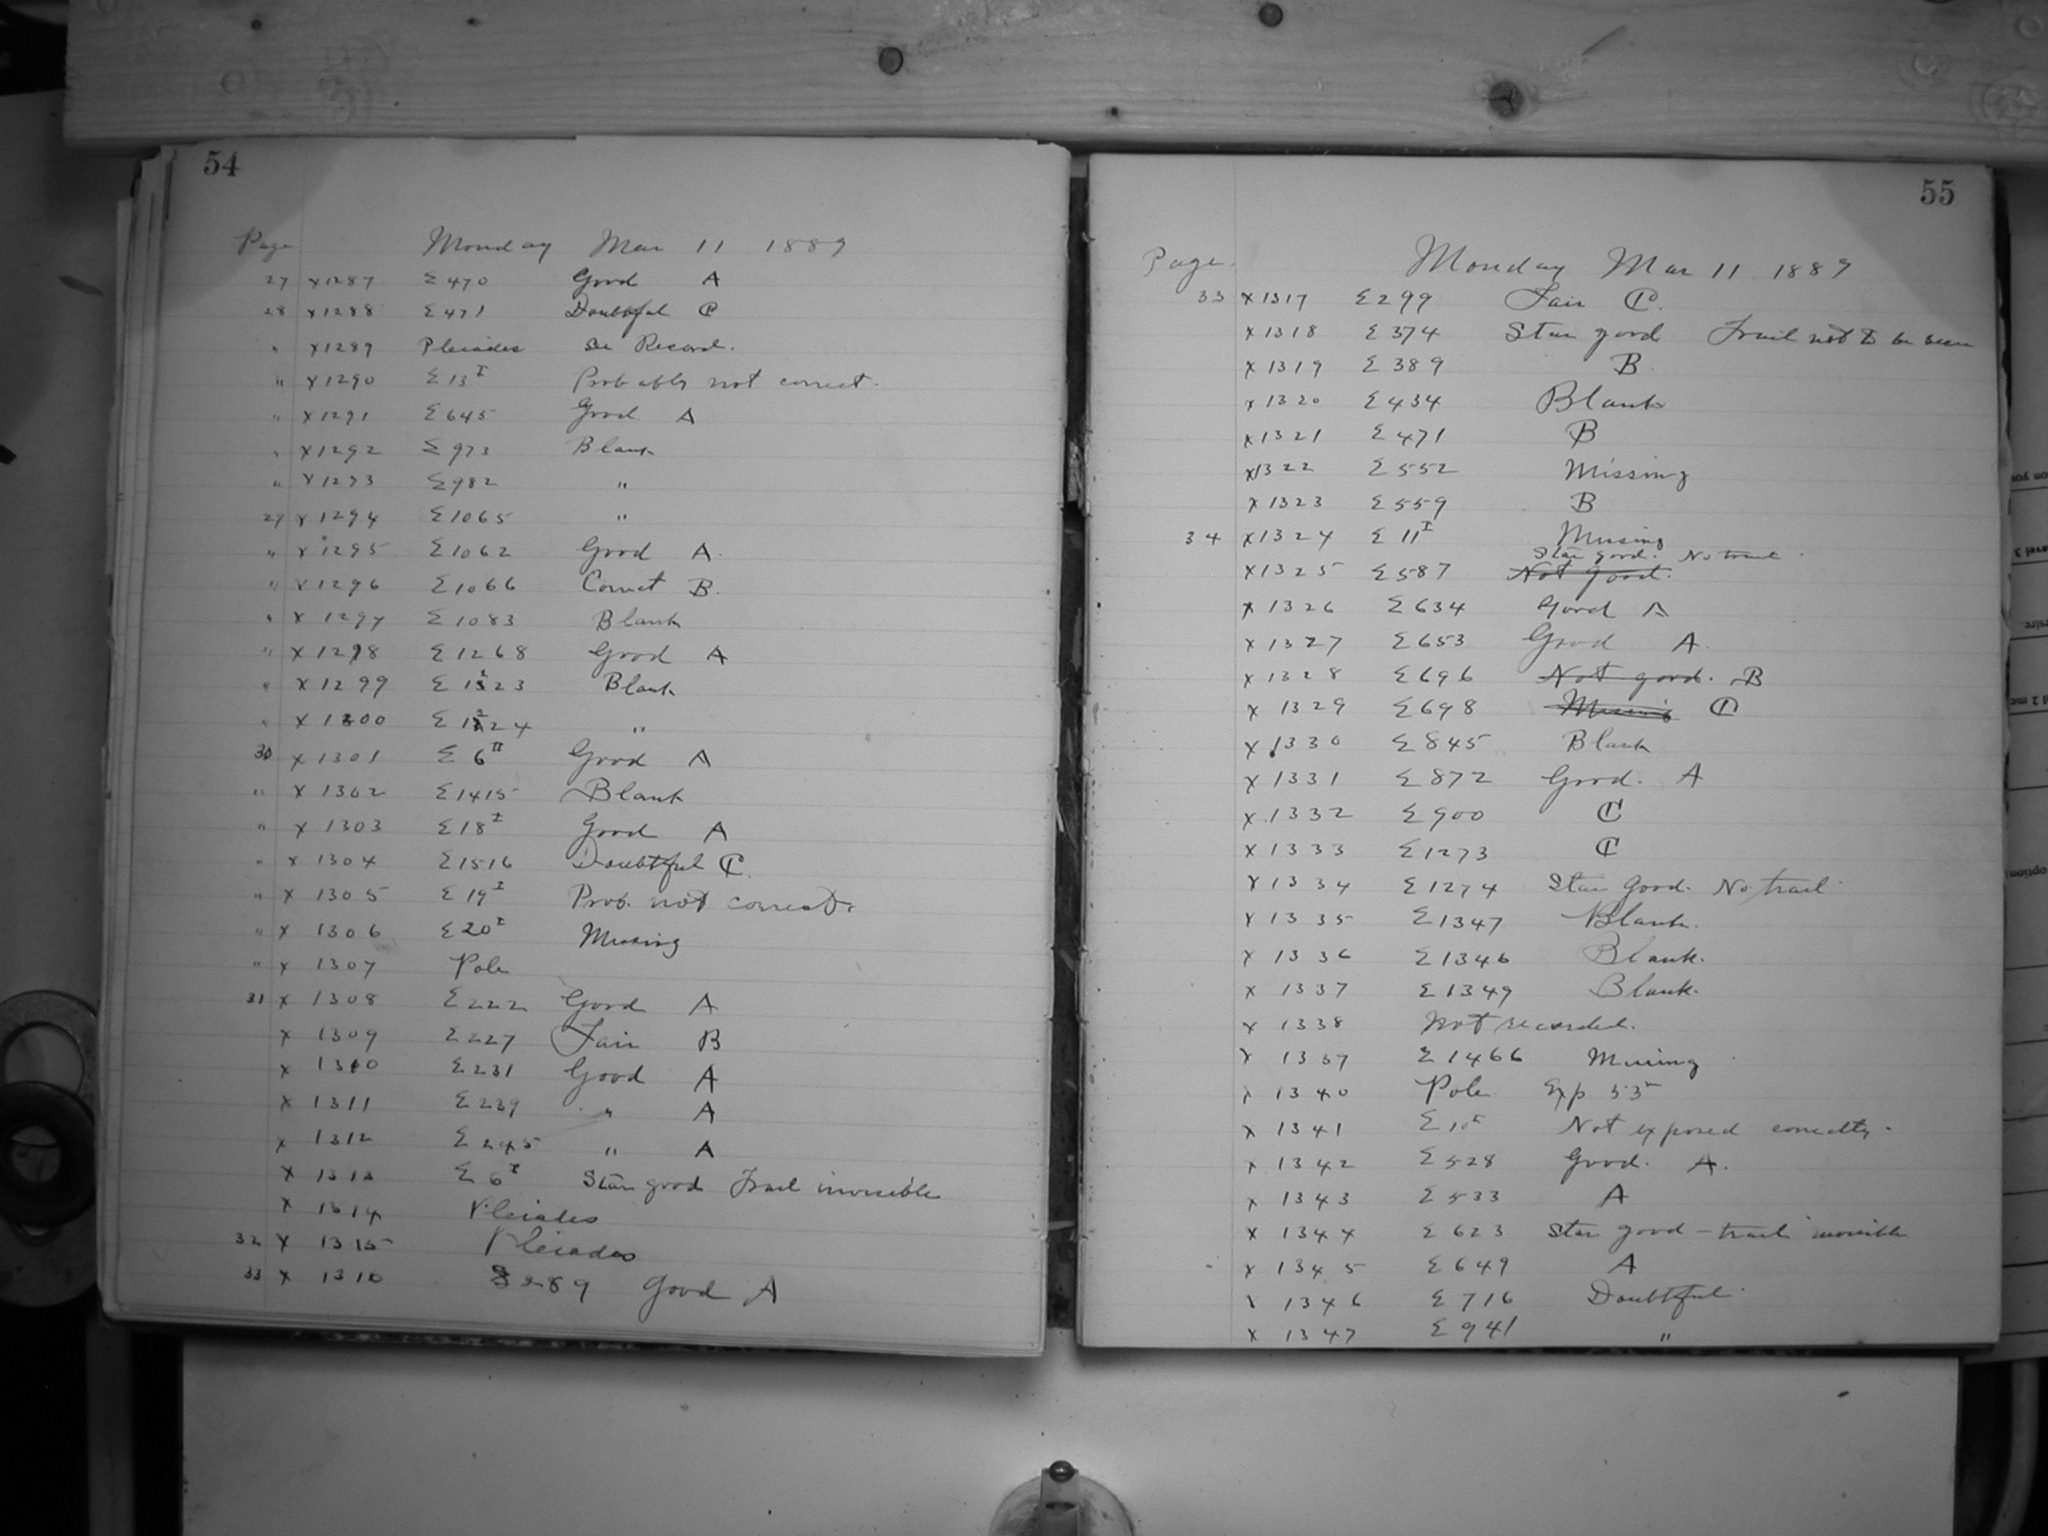 54
Page Monday Mar 11 1889
27 x1287 Σ470 Good A
28 x1288 Σ471 Doubtful C
" x1289 Pleiades See Record.
" x1290 Σ13 I Probably not correct.
" x1291 Σ645 Good A
" x1292 Σ973 Blank
" x1293 Σ982 "
29 x1294 Σ1065 "
" x1295 Σ1062 Good A.
" x1296 Σ1066 Correct B.
" x1297 Σ1083 Blank
" x1298 Σ1268 Good A
" x1299 Σ1223 Blank
" x1300 Σ1224 "
30 x1301 Σ6 II Good A
" x1302 Σ1415 Blank
" x1303 Σ18 I Good A
" x1304 Σ1516 Doubtful C.
" x1305 Σ19 I Prob. not correct.
" x1306 Σ20 I Missing
" x1307 Pole
31 x1308 Σ222 Good A
x1309 Σ227 Fair B
x1310 Σ231 Good A
x1311 Σ239 " A
x1312 Σ245 " A
x1313 Σ6 I Star good Trail invisible
x1314 Pleiades
32 x1315 Pleiades
33 x1316 Σ289 Good A
55
Page. Monday Mar 11 1889
33 x1317 Σ299 Fair C.
x1318 Σ374 Star good Trail not to be seen
x1319 Σ389 B.
x1320 Σ434 Blank
x1321 Σ471 B
x1322 Σ552 Missing
x1323 Σ559 B
34 x1324 Σ11 I Missing
Star good. No trail.
x1325 Σ587 Not good.
x1326 Σ634 Good A
x1327 Σ653 Good A.
x1328 Σ696 Not good. B
x1329 Σ698 Missing C
x1330 Σ845 Blank
x1331 Σ872 Good. A
x1332 Σ900 C
x1333 Σ1273 C
x1334 Σ1274 Star good. No trail.
x1335 Σ1347 Blank.
x1336 Σ1346 Blank.
x1337 Σ1349 Blank.
x1338 Not recorded.
x1339 Σ1466 Missing
x1340 Pole Exp 53
x1341 Σ10 I Not exposed correctly.
x1342 Σ528 Good. A.
x1343 Σ533 A
x1344 Σ623 Star good – trail invisible
x1345 Σ649 A
x1346 Σ716 Doubtful.
x1347 Σ941 "